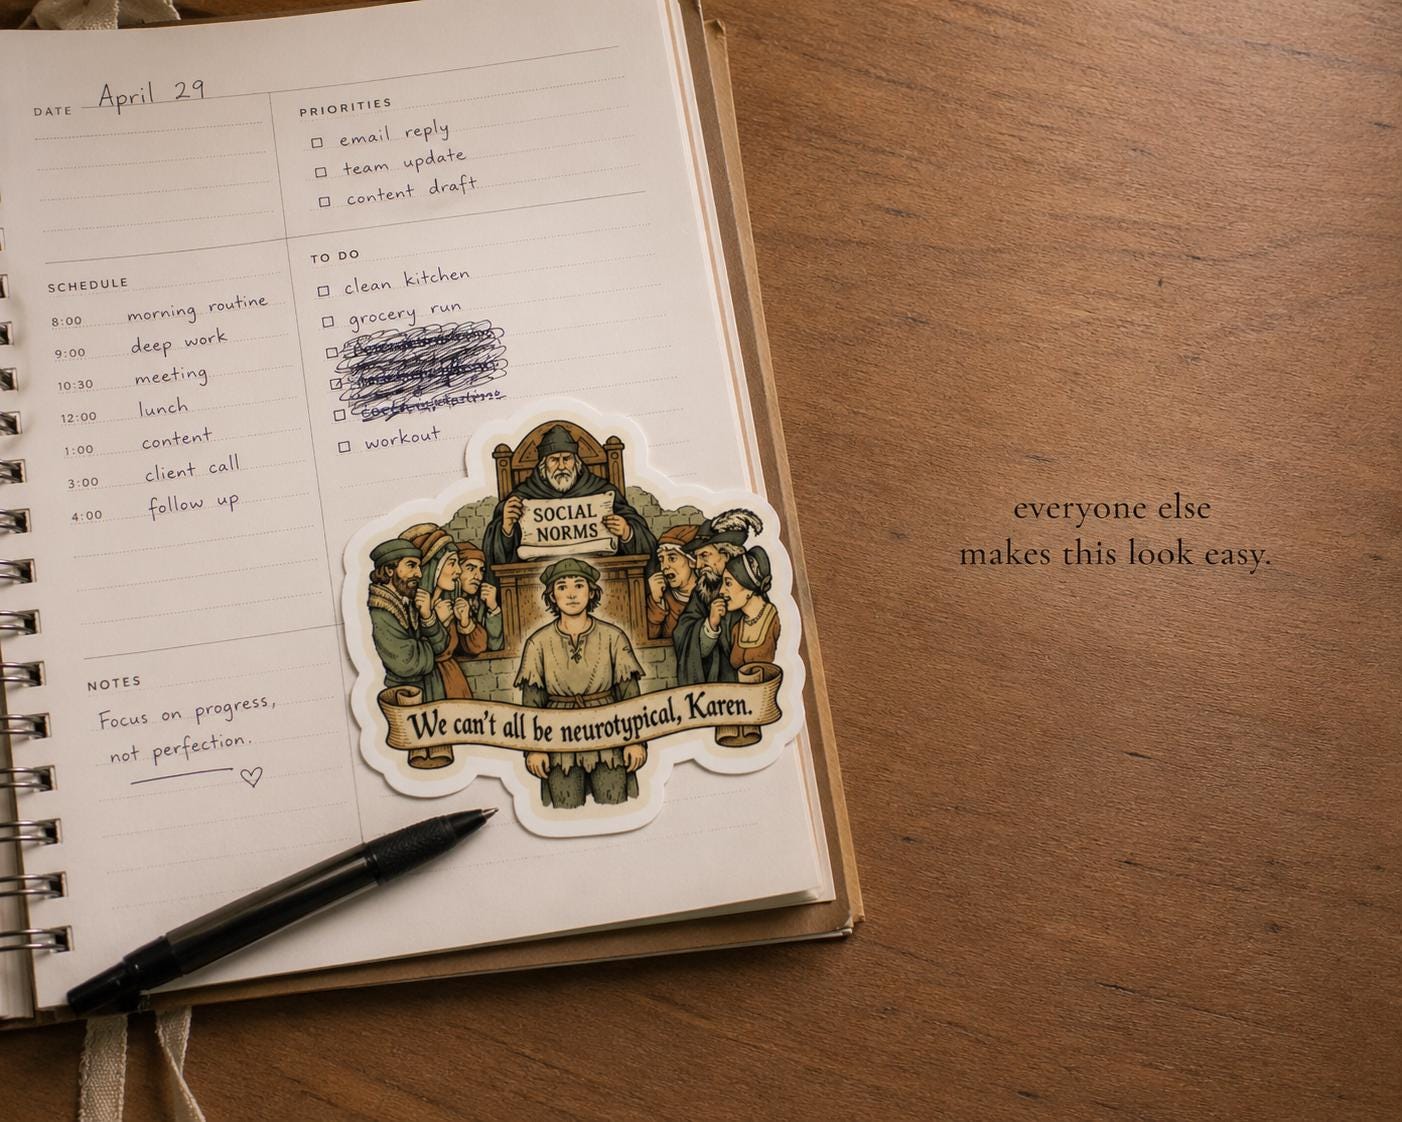 DATE April 29
PRIORITIES
email reply
team update
content draft
SCHEDULE
8:00 morning routine
9:00 deep work
10:30 meeting
12:00 lunch
1:00 content
3:00 client call
4:00 follow up
TO DO
clean kitchen
grocery run
workout
NOTES
Focus on progress,
not perfection.
SOCIAL
NORMS
We can't all be neurotypical, Karen.
everyone else
makes this look easy.